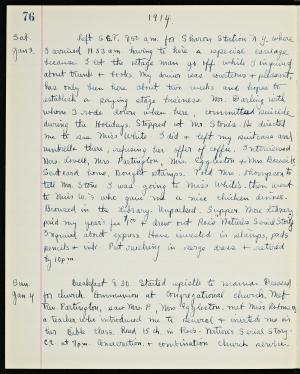 76
1914
Sat. Left S.C.P. 8:50 a.m. for Sharon Station N.Y. where
Jan 3. I arrived 11:33 a.m. having to hire a special carriage
because I let the stage man go off while I inquired
about trunk + books. My driver was courteous + pleasant,
has only been here about two weeks and hopes to
establish a paying stage business. Mr. Darling with
whom I rode down when here, committed suicide
during the Holidays. Stopped at Mr. Stone's. He directed
me to see Miss White. I did + left my suitcase and
umbrella there, refusing her offer of coffee. I interviewed
Mrs. Lovell, Mrs. Partington, Mrs. Eggleston + Mrs.
Sent card home, bought stamps. Told Mrs. Thompson to
tell Mr. Stone I was going to Miss White's. Then went
to Miss W.'s who gave me a nice chicken dinner.
Browsed in the Library. Unpacked. Supper. More Library
paid my year's fee $1.00 + drew out Roe's Nature's Serial Story
Inquired about express. Have invested in stamps, pads
pencils + ink. Put ruching in serge dress + retired
by 10 p.m.
Sun. Breakfast 8:30. Started epistle to mama. Dressed
Jan. 4 for church. Communion at Congregational church. Met
Mrs Partington, saw Mr. P., Mrs. Eggleston, met Miss
a teacher, who introduced me to several + invited me in
her Bible class. Read 15 ch. in Roe's - Nature's Serial Story.
C.E. at 7 p.m. Consecration + combination church service.